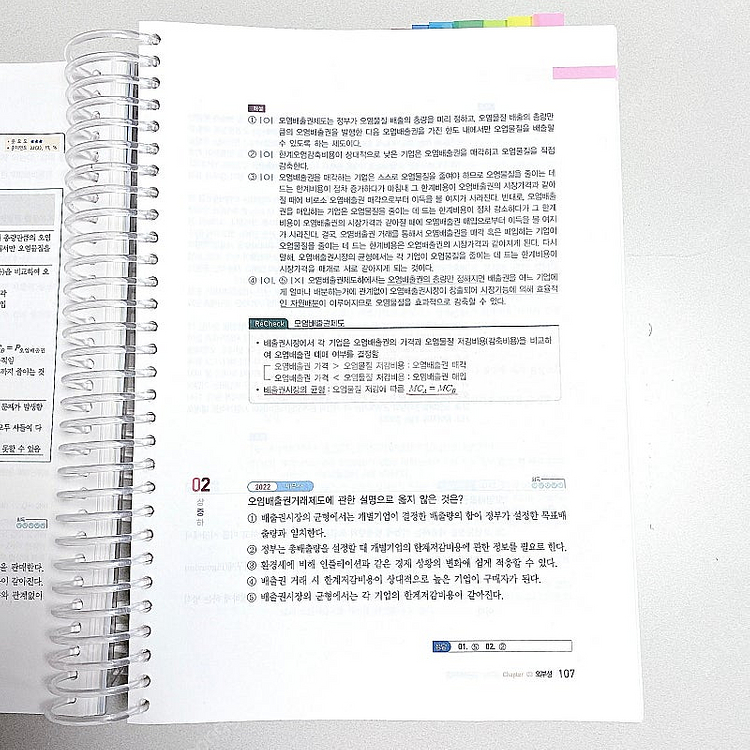 중요도 ●●●
총량만큼의 오염
에서만 오염물질을
)을 비교하여 오
각
입
= P오염배출권
까지 줄이는 것
문제가 발생함
모두 사들여 다
못할 수 있음
을 판매한다.
이 같아진다.
와 관계없이
해설
① |O| 오염배출권제도는 정부가 오염물질 배출의 총량을 미리 정하고, 오염물질 배출의 총량만
큼의 오염배출권을 발행한 다음 오염배출권을 가진 한도 내에서만 오염물질을 배출할
수 있도록 하는 제도이다.
② |O| 한계오염감축비용이 상대적으로 낮은 기업은 오염배출권을 매각하고 오염물질을 직접
감축한다.
③ |O| 오염배출권을 매각하는 기업은 스스로 오염물질을 줄여야 하므로 오염물질을 줄이는 데
드는 한계비용이 점차 증가하다가 마침내 그 한계비용이 오염배출권의 시장가격과 같아
질 때에 비로소 오염배출권 매각으로부터 이득을 볼 여지가 사라진다. 반대로, 오염배출
권을 매입하는 기업은 오염물질을 줄이는 데 드는 한계비용이 점차 감소하다가 그 한계
비용이 오염배출권의 시장가격과 같아질 때에 오염배출권 매입으로부터 이득을 볼 여지
가 사라진다. 결국, 오염배출권 거래를 통해서 오염배출권을 매각 혹은 매입하는 기업이
오염물질을 줄이는 데 드는 한계비용은 오염배출권의 시장가격과 같아지게 된다. 다시
말해, 오염배출권시장의 균형에서는 각 기업이 오염물질을 줄이는 데 드는 한계비용이
시장가격을 매개로 서로 같아지게 되는 것이다.
④ |O|, ⑤ |X| 오염배출권제도하에서는 오염배출권의 총량만 정해지면 배출권을 어느 기업에
게 얼마나 배분하는가에 관계없이 오염배출권시장이 창출되어 시장기능에 의해 효율적
인 자원배분이 이루어지므로 오염물질을 효과적으로 감축할 수 있다.
ReCheck 오염배출권제도
• 배출권시장에서 각 기업은 오염배출권의 가격과 오염물질 저감비용(감축비용)을 비교하
여 오염배출권 매매 여부를 결정함
오염배출권 가격 > 오염물질 저감비용 : 오염배출권 매각
오염배출권 가격 < 오염물질 저감비용 : 오염배출권 매입
• 배출권시장의 균형 : 오염물질 저감에 따른 MC_A = MC_B
02
2022
상
중
하
오염배출권거래제도에 관한 설명으로 옳지 않은 것은?
① 배출권시장의 균형에서는 개별기업이 결정한 배출량의 합이 정부가 설정한 목표배
출량과 일치한다.
② 정부는 총배출량을 설정할 때 개별기업의 한계저감비용에 관한 정보를 필요로 한다.
③ 환경세에 비해 인플레이션과 같은 경제 상황의 변화에 쉽게 적응할 수 있다.
④ 배출권 거래 시 한계저감비용이 상대적으로 높은 기업이 구매자가 된다.
⑤ 배출권시장의 균형에서는 각 기업의 한계저감비용이 같아진다.
정답 01. ⑤ 02. ②
Chapter 외부성 107